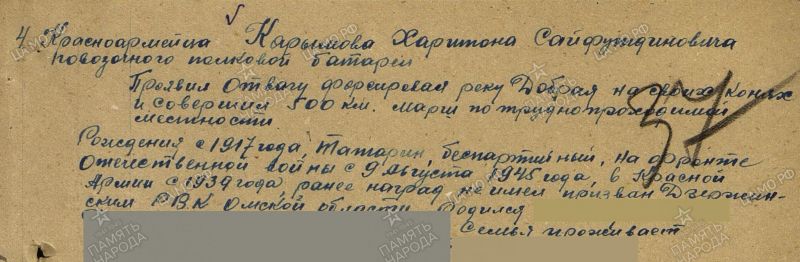 4 Красноармейца Карымова Харитона Сайфутдиновича
повозочного полковой батареи
Проявил отвагу форсировая реку Добрая на своих конях
и совершил 500 км. марш по трудно проходимой
местности
37
Рождения с 1917 года, татарин, беспартийный, на фронте
Отечественной войны с 9 Августа 1945 года, в Красной
Армии с 1939 года ранее наград не имел призван Дзержин-
ским РВК Омской области. Родился
Семья проживает
ЦАМО.РФ
ПАМЯТЬ НАРОДА